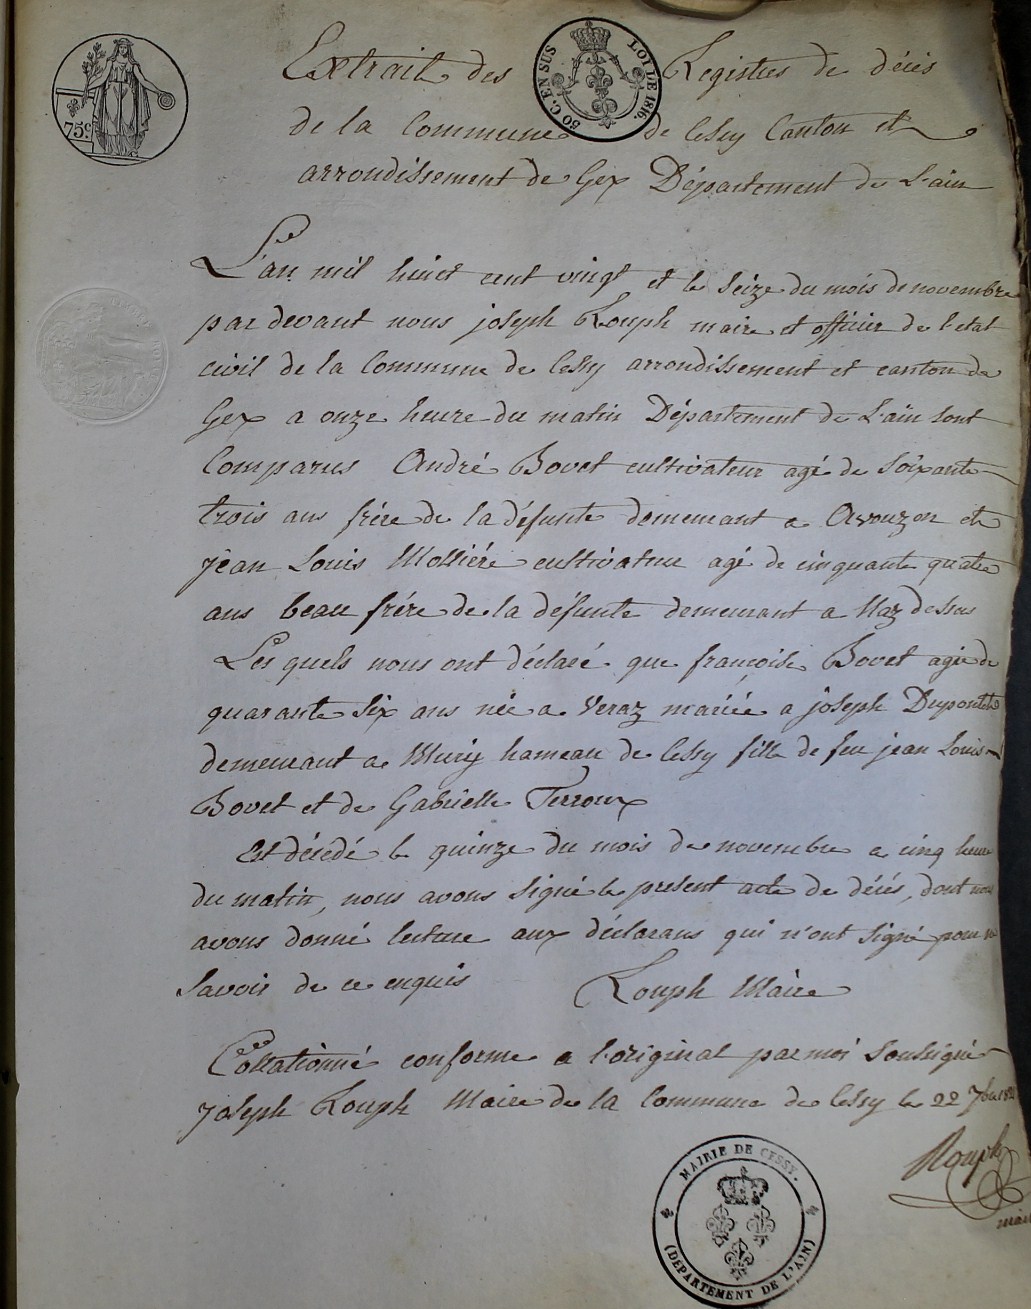 75c
50 C. EN SUS LOI DE 1816.
Extrait des Registres de décès
de la Commune de Cessy Canton et
arrondissement de Gex Département de L'ain
L'an mil huict cent vingt et le seize du mois de novembre
par devant nous joseph Rouph maire et officier de l'etat
civil de la Commune de Cessy arrondissement et canton de
Gex a onze heure du matin Département de L'ain sont
Comparus André Bovet cultivateur agé de soixante
trois ans frére de la défunte demeurant a Avouzon et
jean Louis Mossiére cultivateur agé de cinquante quatre
ans beau frére de la défunte demeurant a Naz dessus
Les quels nous ont déclaré que francoise Bovet agée de
quarante six ans née a Veraz mariée a joseph
demeurant a hameau de Cessy fille de feu jean Louis
Bovet et de Gabrielle Terroux
Est décédé le quinze du mois de novembre a cinq heure
du matin, nous avons signé le present acte de décés, dont nous
avons donné lecture aux déclarans qui n'ont signé pour ne
savoir de ce enquis Rouph Maire
Collationné conforme a l'original par moi soussigné
joseph Rouph Maire de la Commune de Cessy le 22 7bre
Rouph
maire
MAIRIE DE CESSY.
(DEPARTEMENT DE L'AIN)